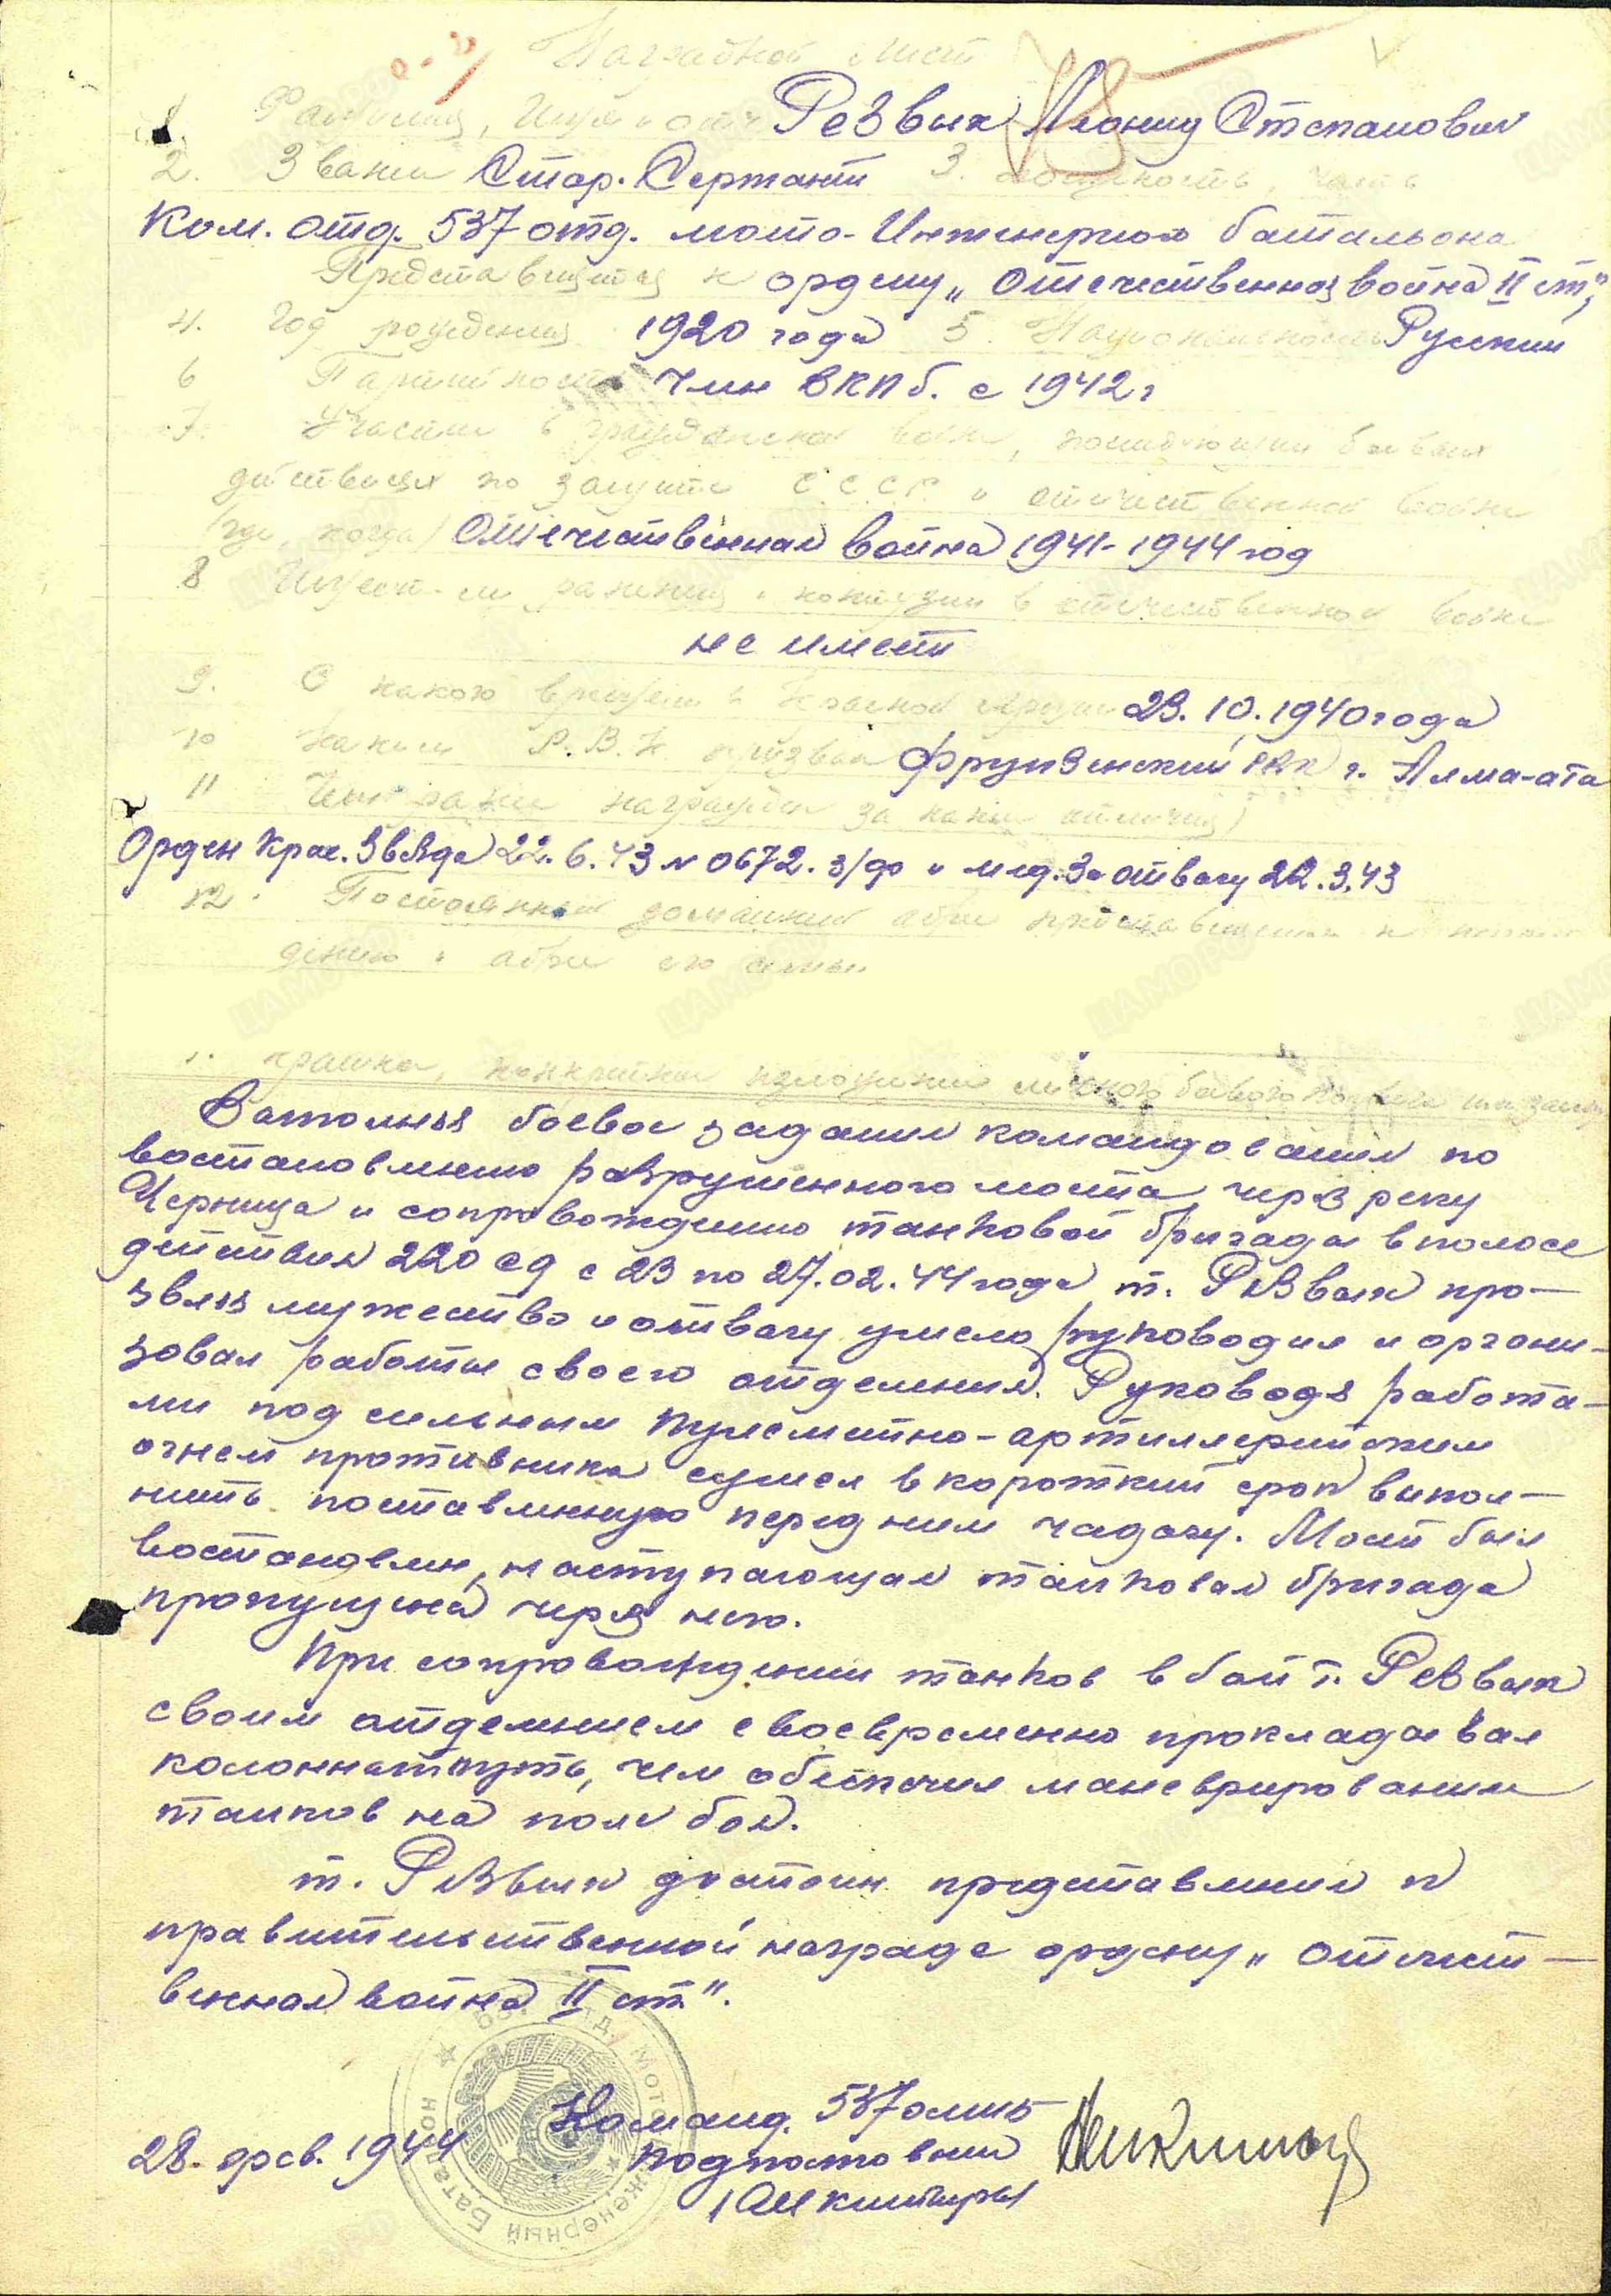 Наградной лист
1. Фамилия, Имя и отч Резвых Леонид Степанович
2. Звание Стар. Сержант 3. должность, часть
Ком. отд. 537 отд. мото-Инженерного батальона
Представляется к ордену „Отечественная война II ст",
4. Год рождения 1920 года 5. Национальность Русский
6 Партийность Член ВКП б. с 1942 г
7. Участие в гражданской войне, последующих боевых
действиях по защите СССР и отечественной войне
(где, когда) Отечественная война 1941-1944 год
8 Имеет-ли ранения и контузии в отечественной войне
не имеет
9. С какого времени в Красной Армии 23.10.1940 года
10 Каким Р.В.К. призван Фрунзенский РВК г. Алма-ата
11 Чем ранее награжден за какие отличия)
Орден Крас. Звезда 22.6.43 № 0672. з/ф и мед. За отвагу 22.3.43
12. Постоянный домашний адрес представляемого к награж
дению и адрес его семьи
1. краткое, конкретное изложение личного боевого подвига или заслуг
Ватолняя боевое задание командования по
востановлению разрушенного моста через реку
Черница и сопровождению танковой бригады в полосе
действия 220 сд с 23 по 27.02.44 года т. Резвых про-
звляя мужество и отвагу умело руководил и органи-
зовал работы своего отделения. Руководя работа-
ми под сильным пулеметно-артиллерийским
огнем противника сумел в короткий срок выпол-
нить поставленную перед ним задачу. Мост был
востановлен, наступающая танковая бригада
пропущена через него.
При сопровождении танков в бой т. Резвых
своим отделением своевременно прокладывал
колонный путь, чем обеспечил маневрирование
танков на поле боя.
т. Резвых достоин представления к
правительственной награде ордену „Отечест-
венная война II ст".
Команд. 537 омиб
28. фев. 1944 Подполковник